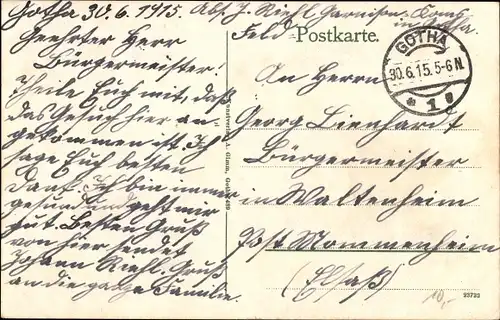 Gotha 30.6.1915. Abs. J. Riehl. Garnison. Komp
in Gotha.
Feld Postkarte.
GOTHA
30.6.15.5-6N.
* 1 *
Geehrter Herr
Bürgermeister!
Theile Euch mit, daß
das Gesuch hier an-
gekommen ist. Ich
sage Euch besten
Dank. Ich bin immer
gesund und geht mir
gut. Besten Gruß
von hier sendet
Johann Riehl. Gruß
an die ganze Familie.
An Herrn
Georg Lienhardt
Bürgermeister
in Waltenheim
Post Mommenheim
(Elsaß)
10,-
23723